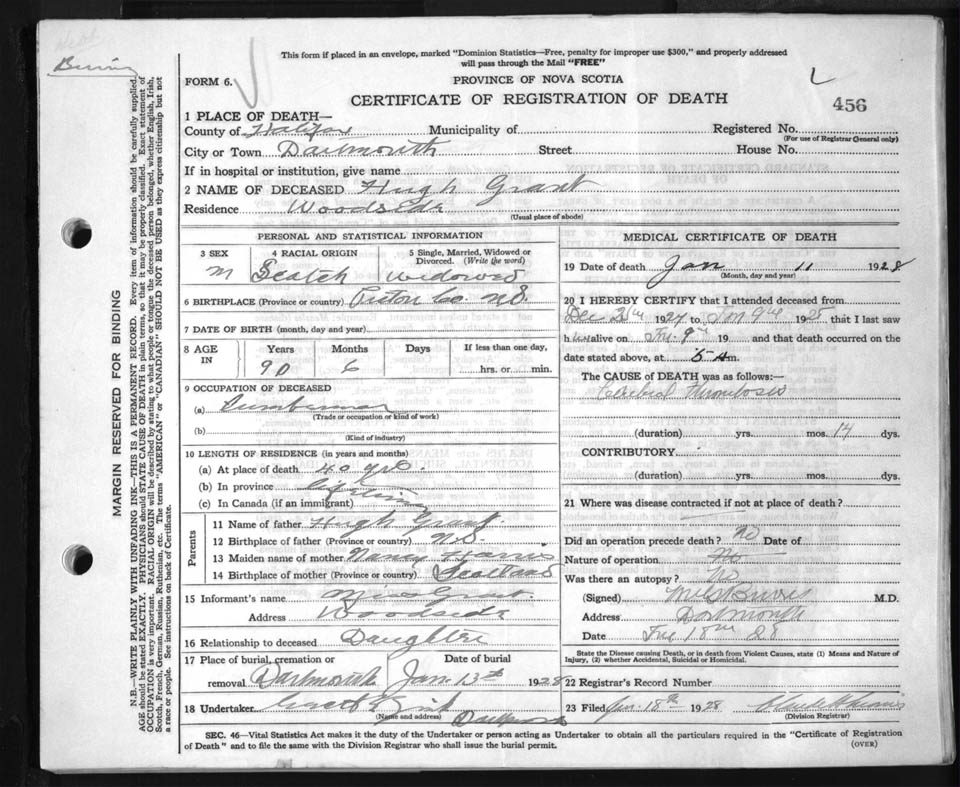 This form if placed in an envelope, marked "Dominion Statistics—Free, penalty for improper use $300," and properly addressed
will pass through the Mail "FREE"
FORM 6.
PROVINCE OF NOVA SCOTIA
CERTIFICATE OF REGISTRATION OF DEATH
456
1 PLACE OF DEATH—
County of Halifax Municipality of Registered No.
(For use of Registrar General only)
City or Town Dartmouth Street House No.
If in hospital or institution, give name
2 NAME OF DECEASED Hugh Grant
Residence Woodside
(Usual place of abode)
PERSONAL AND STATISTICAL INFORMATION
3 SEX 4 RACIAL ORIGIN 5 Single, Married, Widowed or Divorced. (Write the word)
M Scotch Widowed
6 BIRTHPLACE (Province or country) Pictou Co. N.S.
7 DATE OF BIRTH (month, day and year)
8 AGE IN Years Months Days If less than one day,
90 6 hrs. or min.
9 OCCUPATION OF DECEASED
(a) Lumberman
(Trade or occupation or kind of work)
(b)
(Kind of industry)
10 LENGTH OF RESIDENCE (in years and months)
(a) At place of death 40 yrs.
(b) In province lifetime
(c) In Canada (if an immigrant)
Parents
11 Name of father Hugh Grant
12 Birthplace of father (Province or country) N.S.
13 Maiden name of mother Nancy Harris
14 Birthplace of mother (Province or country) Scotland
15 Informant's name Miss Grant
Address Woodside
16 Relationship to deceased Daughter
17 Place of burial, cremation or Date of burial
removal Dartmouth Jan. 13th 1928
18 Undertaker
(Name and address) Dartmouth
MEDICAL CERTIFICATE OF DEATH
19 Date of death Jan 11 1928
(Month, day and year)
20 I HEREBY CERTIFY that I attended deceased from
Dec 1927 to Jan 9th 1928 that I last saw
h im alive on Jan 9th 19 and that death occurred on the
date stated above, at 5 A m.
The CAUSE of DEATH was as follows:—
Cerebral Thrombosis
(duration) yrs. mos. 14 dys.
CONTRIBUTORY
(duration) yrs. mos. dys.
21 Where was disease contracted if not at place of death?
Did an operation precede death? No Date of
Nature of operation
Was there an autopsy? No
(Signed) M.D.
Address Dartmouth
Date Jan 18th 28
State the Disease causing Death, or in death from Violent Causes, state (1) Means and Nature of
Injury, (2) whether Accidental, Suicidal or Homicidal.
22 Registrar's Record Number
23 Filed Jan. 18th 1928
(Division Registrar)
SEC. 46—Vital Statistics Act makes it the duty of the Undertaker or person acting as Undertaker to obtain all the particulars required in the "Certificate of Registration
of Death" and to file the same with the Division Registrar who shall issue the burial permit. (OVER)
MARGIN RESERVED FOR BINDING
N.B.—WRITE PLAINLY WITH UNFADING INK—THIS IS A PERMANENT RECORD. Every item of information should be carefully supplied.
AGE should be stated EXACTLY. PHYSICIANS should STATE CAUSE OF DEATH in plain terms, so that it may be properly classified. Exact statement of
OCCUPATION is very important. RACIAL ORIGIN will be described by stating to what people or tongue the deceased person belonged, whether English, Irish,
Scotch, French, German, Russian, Ruthenian, etc. The terms "AMERICAN" or "CANADIAN" SHOULD NOT BE USED as they express citizenship but not
a race or people. See instructions on back of Certificate.